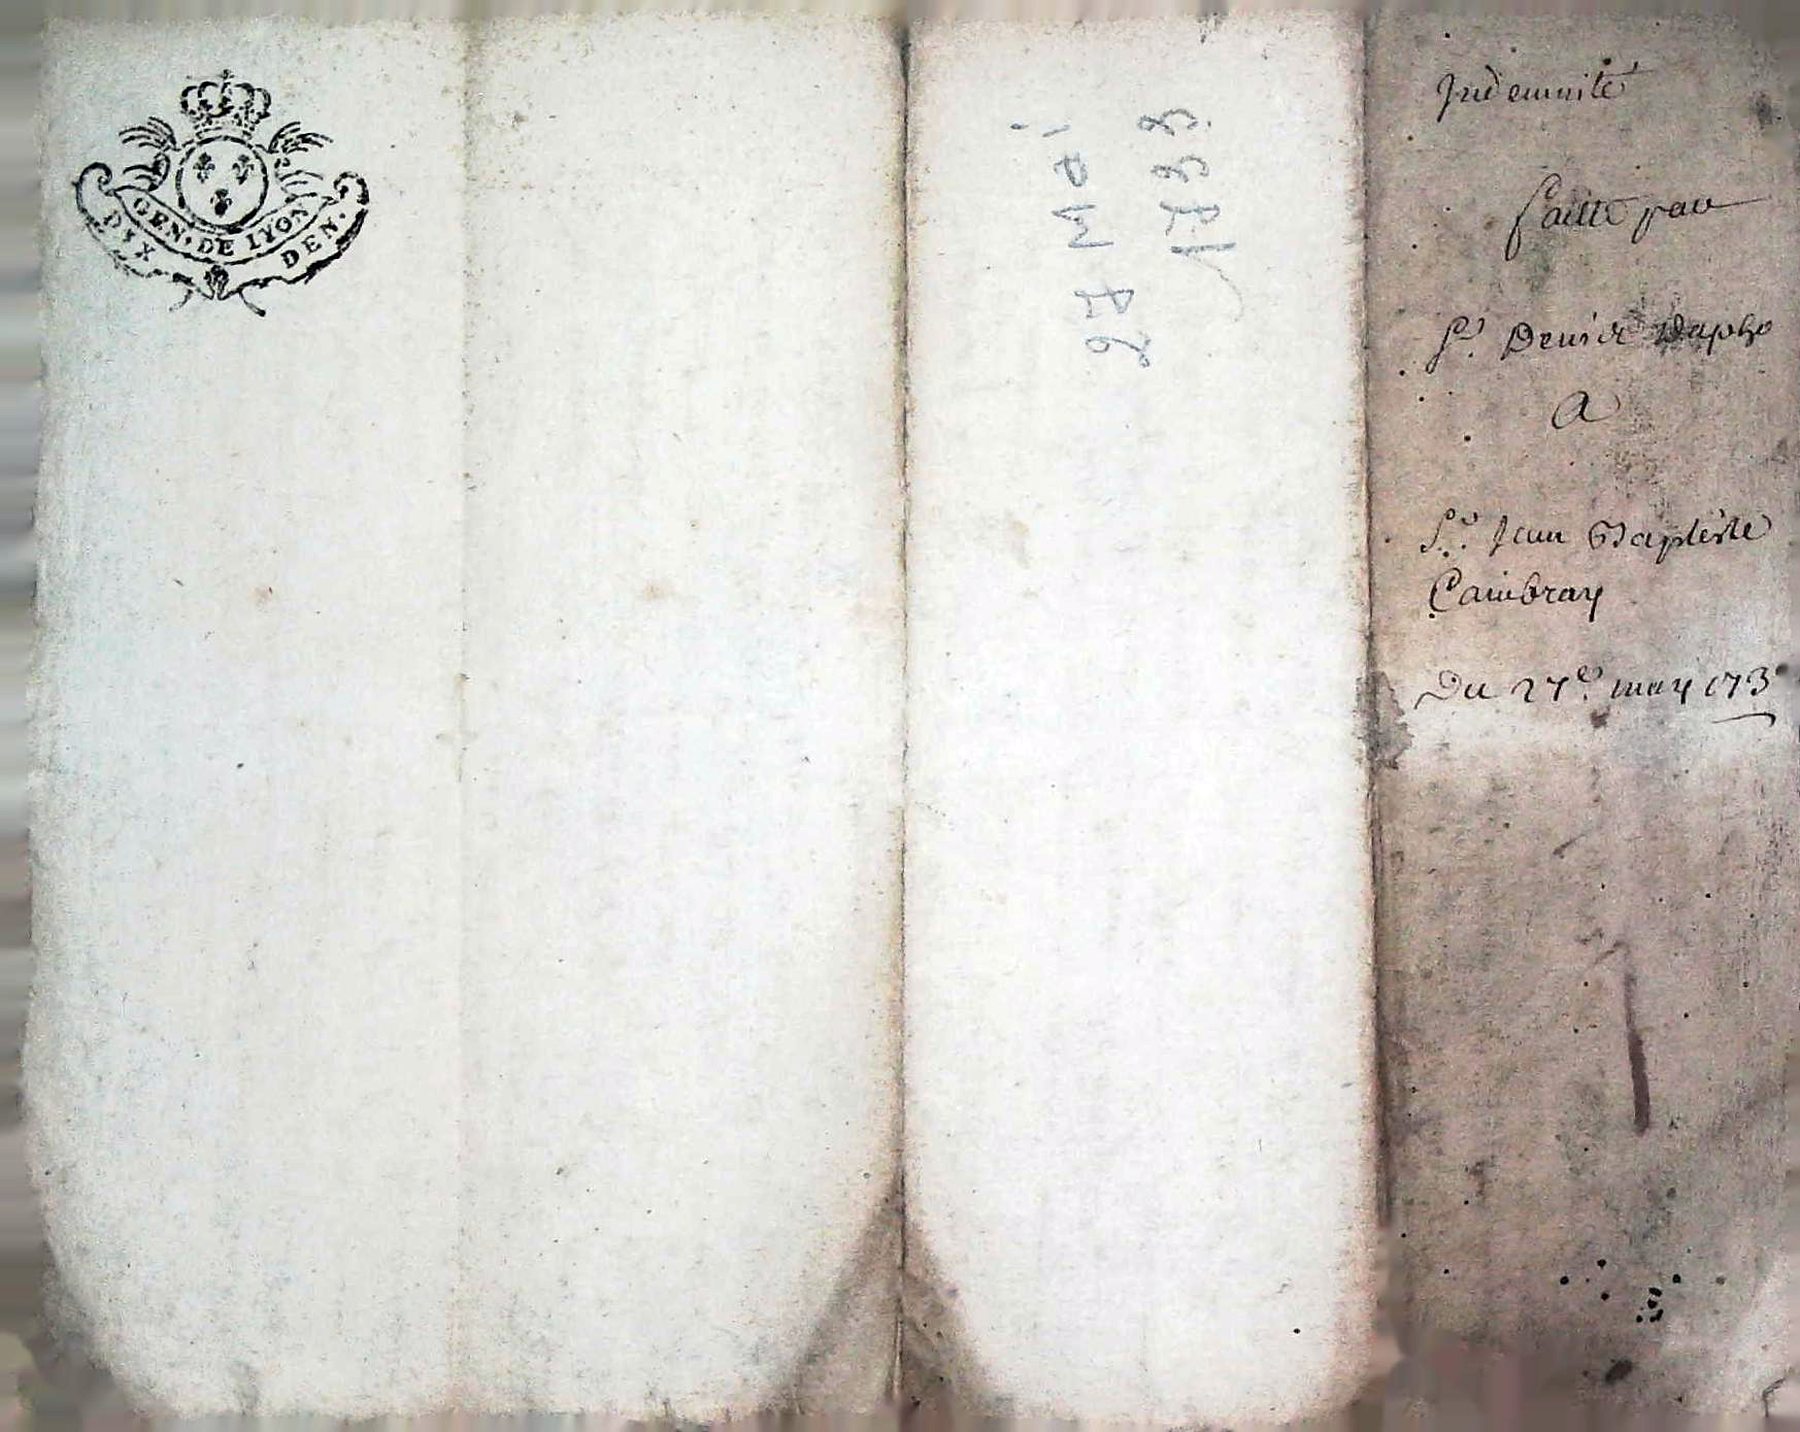 GEN. DE LYON
DIX DEN.
27 Mai
1733
Indemnité
faitte par
Sr. Denis
A
Sr. Jean Baptiste
Cambray
Du 27e. may 173